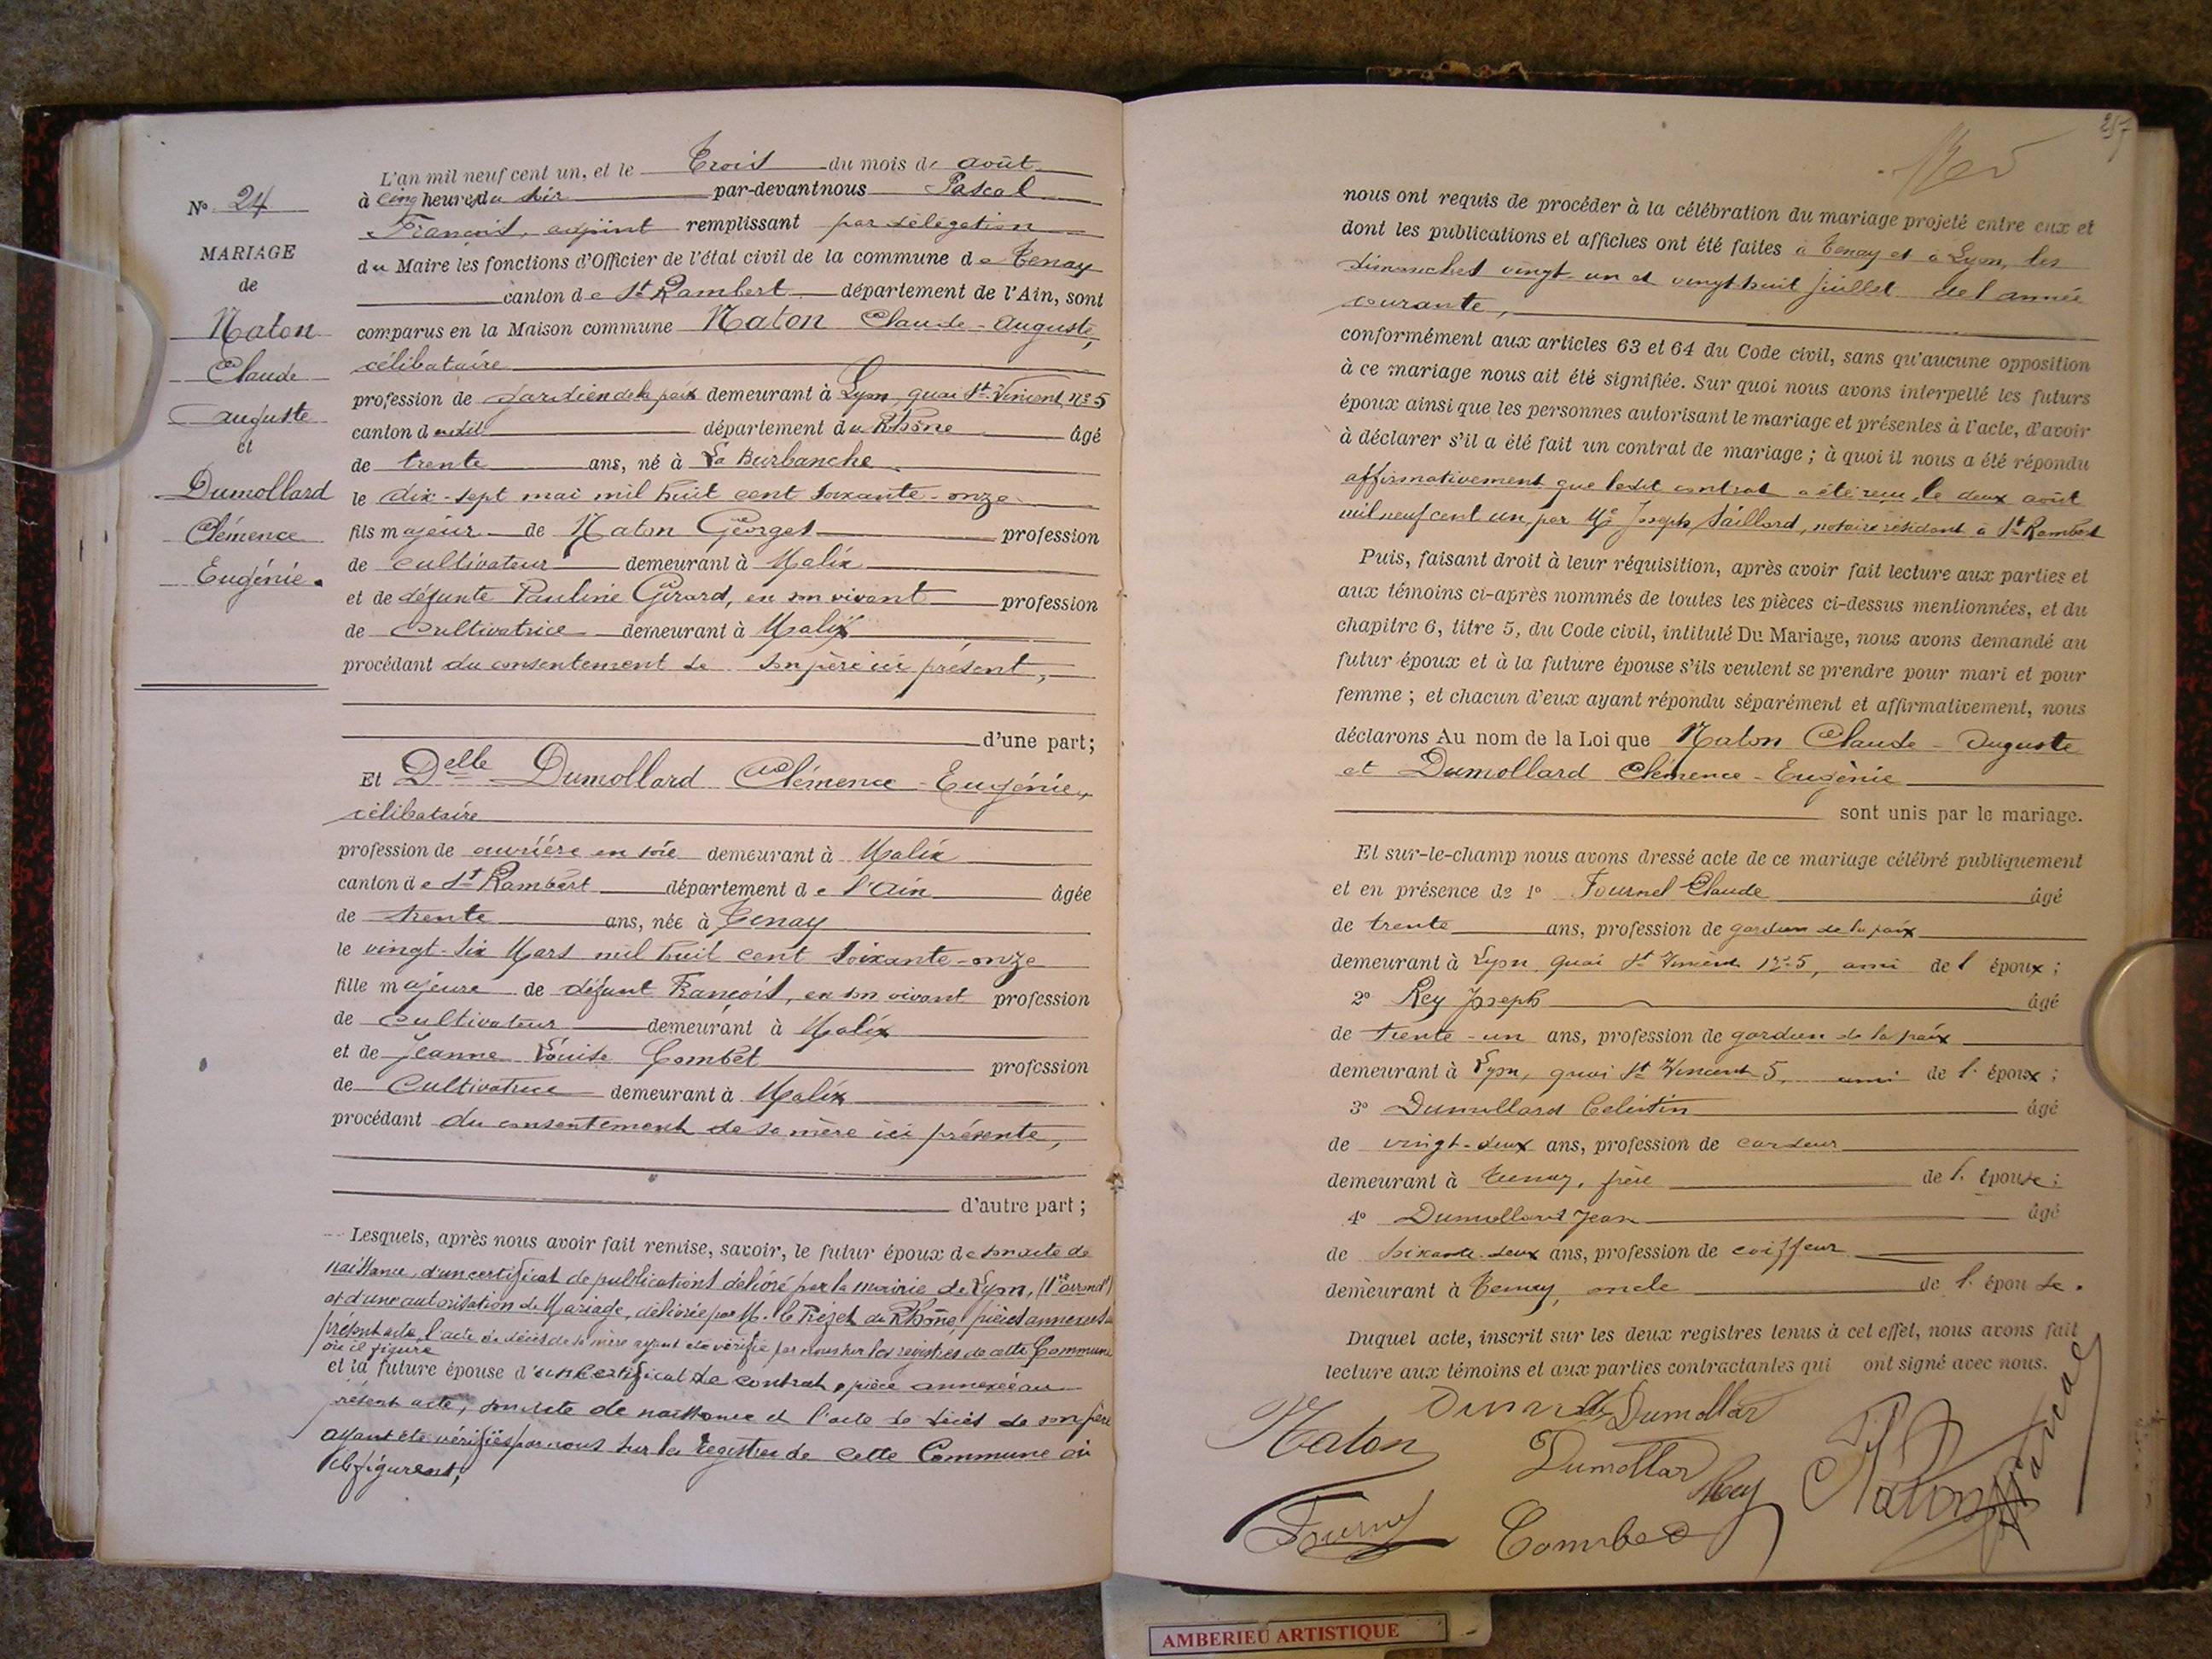 N° 24
MARIAGE
de
Naton
Claude
Auguste
et
Dumollard
Clémence
Eugénie.
L'an mil neuf cent un, et le Trois du mois de août
à cinq heures du soir par-devant nous Pascal
François, adjoint remplissant par délégation
du Maire les fonctions d'Officier de l'état civil de la commune de Tenay
canton de St Rambert département de l'Ain, sont
comparus en la Maison commune Naton Claude-Auguste,
célibataire
profession de gardien de la paix demeurant à Lyon, quai St-Vincent, n° 5
canton dudit département du Rhône âgé
de trente ans, né à La Burbanche
le dix-sept mai mil huit cent soixante-onze
fils majeur de Naton Georges profession
de cultivateur demeurant à Malix
et de défunte Pauline Girard, en son vivant profession
de cultivatrice demeurant à Malix
procédant du consentement de son père ici présent,
d'une part;
Et Delle Dumollard Clémence-Eugénie,
célibataire
profession de ouvrière en soie demeurant à Malix
canton de St Rambert département de l'Ain âgée
de trente ans, née à Tenay
le vingt-six Mars mil huit cent soixante-onze
fille majeure de défunt François, en son vivant profession
de cultivateur demeurant à Malix
et de Jeanne Louise Combet profession
de Cultivatrice demeurant à Malix
procédant du consentement de sa mère ici présente,
d'autre part;
Lesquels, après nous avoir fait remise, savoir, le futur époux de son acte de
naissance, d'un certificat de publications délivré par la mairie de Lyon, (1er arrond)
et d'une autorisation de Mariage, délivrée par M. le Préfet du Rhône, pièces annexées au
présent acte, l'acte de décès de sa mère ayant été vérifié par nous sur les registres de cette Commune
où il figure
et la future épouse d'un certificat de contrat, pièce annexée au
présent acte, son acte de naissance et l'acte de décès de son père
ayant été vérifiés par nous sur les registres de cette Commune où
ils figurent,
257
nous ont requis de procéder à la célébration du mariage projeté entre eux et
dont les publications et affiches ont été faites à Tenay et à Lyon, les
dimanches vingt un et vingt huit juillet de l'année
courante,
conformément aux articles 63 et 64 du Code civil, sans qu'aucune opposition
à ce mariage nous ait été signifiée. Sur quoi nous avons interpellé les futurs
époux ainsi que les personnes autorisant le mariage et présentes à l'acte, d'avoir
à déclarer s'il a été fait un contrat de mariage; à quoi il nous a été répondu
affirmativement que ledit contrat a été reçu le deux août
mil neuf cent un par Me Joseph Saillard, notaire résidant à St Rambert
Puis, faisant droit à leur réquisition, après avoir fait lecture aux parties et
aux témoins ci-après nommés de toutes les pièces ci-dessus mentionnées, et du
chapitre 6, titre 5, du Code civil, intitulé Du Mariage, nous avons demandé au
futur époux et à la future épouse s'ils veulent se prendre pour mari et pour
femme; et chacun d'eux ayant répondu séparément et affirmativement, nous
déclarons Au nom de la Loi que Naton Claude-Auguste
et Dumollard Clémence-Eugénie
sont unis par le mariage.
Et sur-le-champ nous avons dressé acte de ce mariage célébré publiquement
et en présence de 1° Fournel Claude âgé
de trente ans, profession de gardien de la paix
demeurant à Lyon, quai St Vincent n° 5, ami de l'époux;
2° Rey Joseph âgé
de trente-un ans, profession de gardien de la paix
demeurant à Lyon, quai St Vincent 5, ami de l'époux;
3° Dumollard Celestin âgé
de vingt-deux ans, profession de cardeur
demeurant à Tenay, frère de l'épouse;
4° Dumollard Jean âgé
de soixante-deux ans, profession de coiffeur
demeurant à Tenay, oncle de l'épouse.
Duquel acte, inscrit sur les deux registres tenus à cet effet, nous avons fait
lecture aux témoins et aux parties contractantes qui ont signé avec nous.
Naton Dumollar
Dumollar Rey Naton
Fournel Combet
AMBERIEU ARTISTIQUE